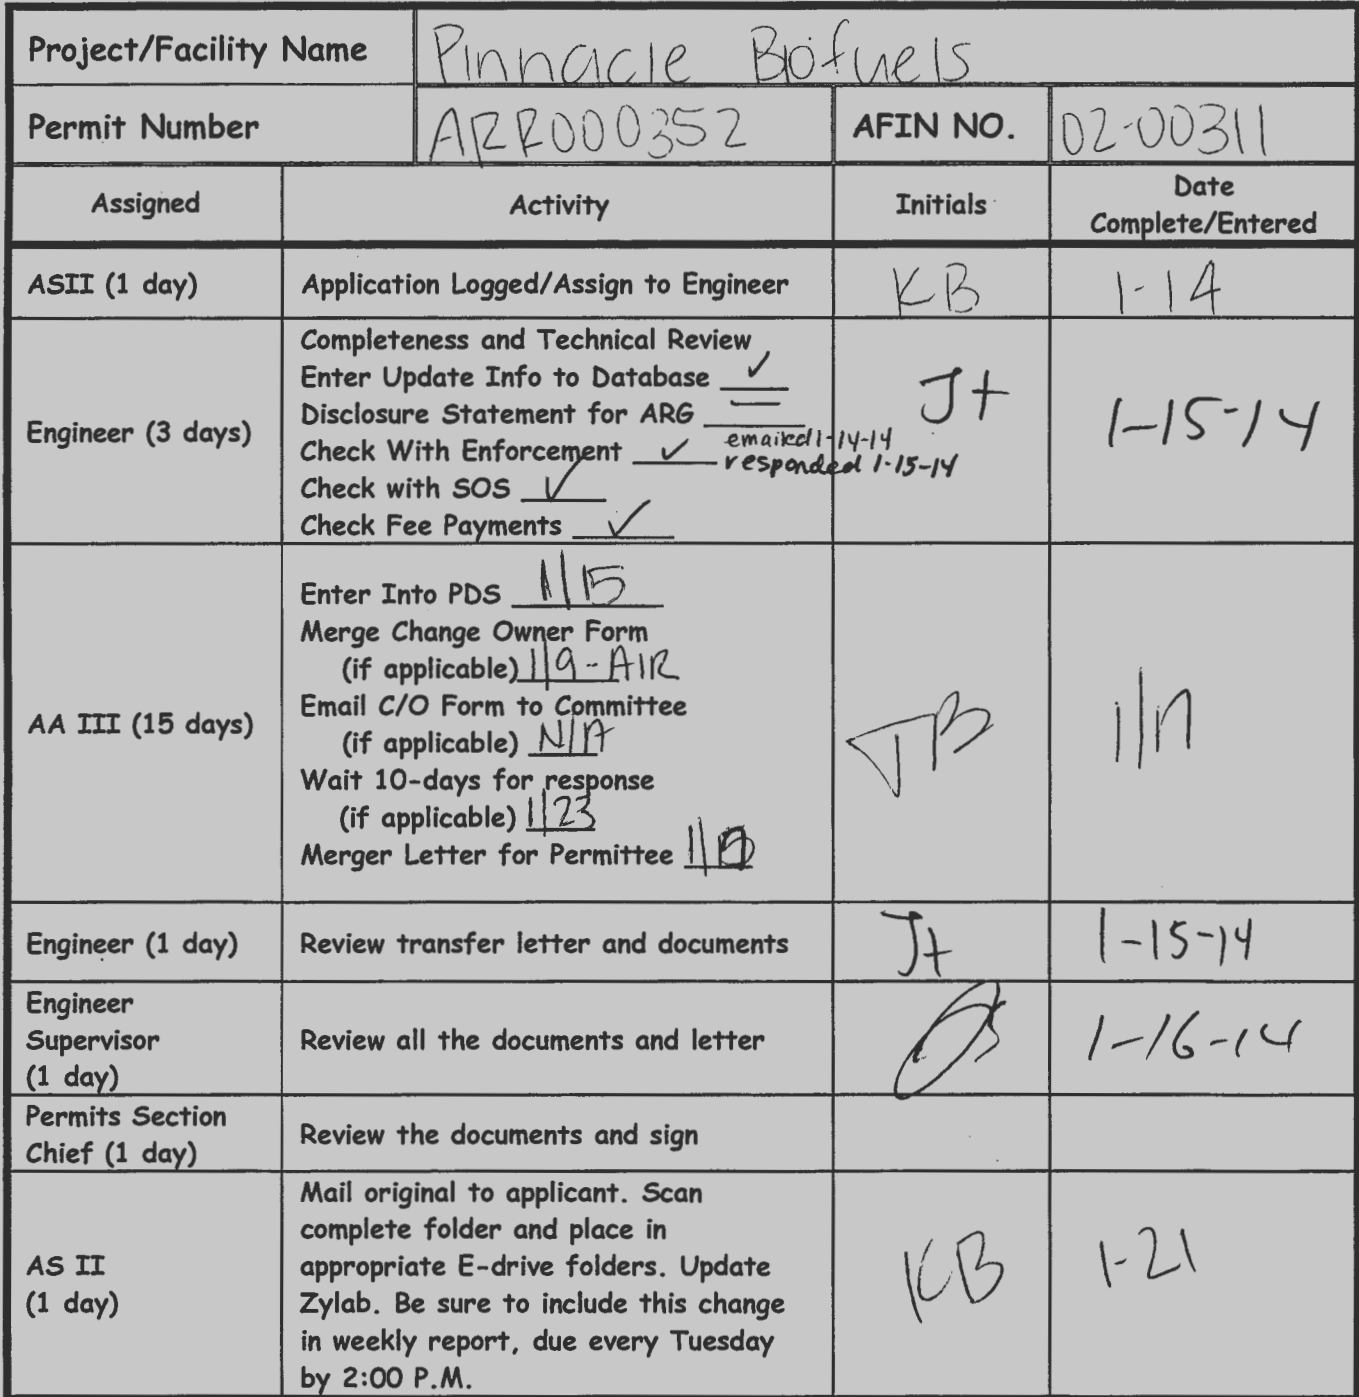 Project/Facility Name Pinnacle Biofuels
Permit Number ARR000352 AFIN NO. 02-00311
Assigned Activity Initials Date
Complete/Entered
ASII (1 day) Application Logged/Assign to Engineer KB 1-14
Engineer (3 days)
Completeness and Technical Review
Enter Update Info to Database ✓
Disclosure Statement for ARG —
Check With Enforcement ✓ emailed 1-14-14
responded 1-15-14
Check with SOS ✓
Check Fee Payments ✓
Jt 1-15-14
AA III (15 days)
Enter Into PDS 1/15
Merge Change Owner Form
(if applicable) 1/9-AIR
Email C/O Form to Committee
(if applicable) N/A
Wait 10-days for response
(if applicable) 1/23
Merger Letter for Permittee
JB
Engineer (1 day) Review transfer letter and documents Jt 1-15-14
Engineer
Supervisor
(1 day)
Review all the documents and letter 1-16-14
Permits Section
Chief (1 day)
Review the documents and sign
AS II
(1 day)
Mail original to applicant. Scan
complete folder and place in
appropriate E-drive folders. Update
Zylab. Be sure to include this change
in weekly report, due every Tuesday
by 2:00 P.M.
KB 1-21